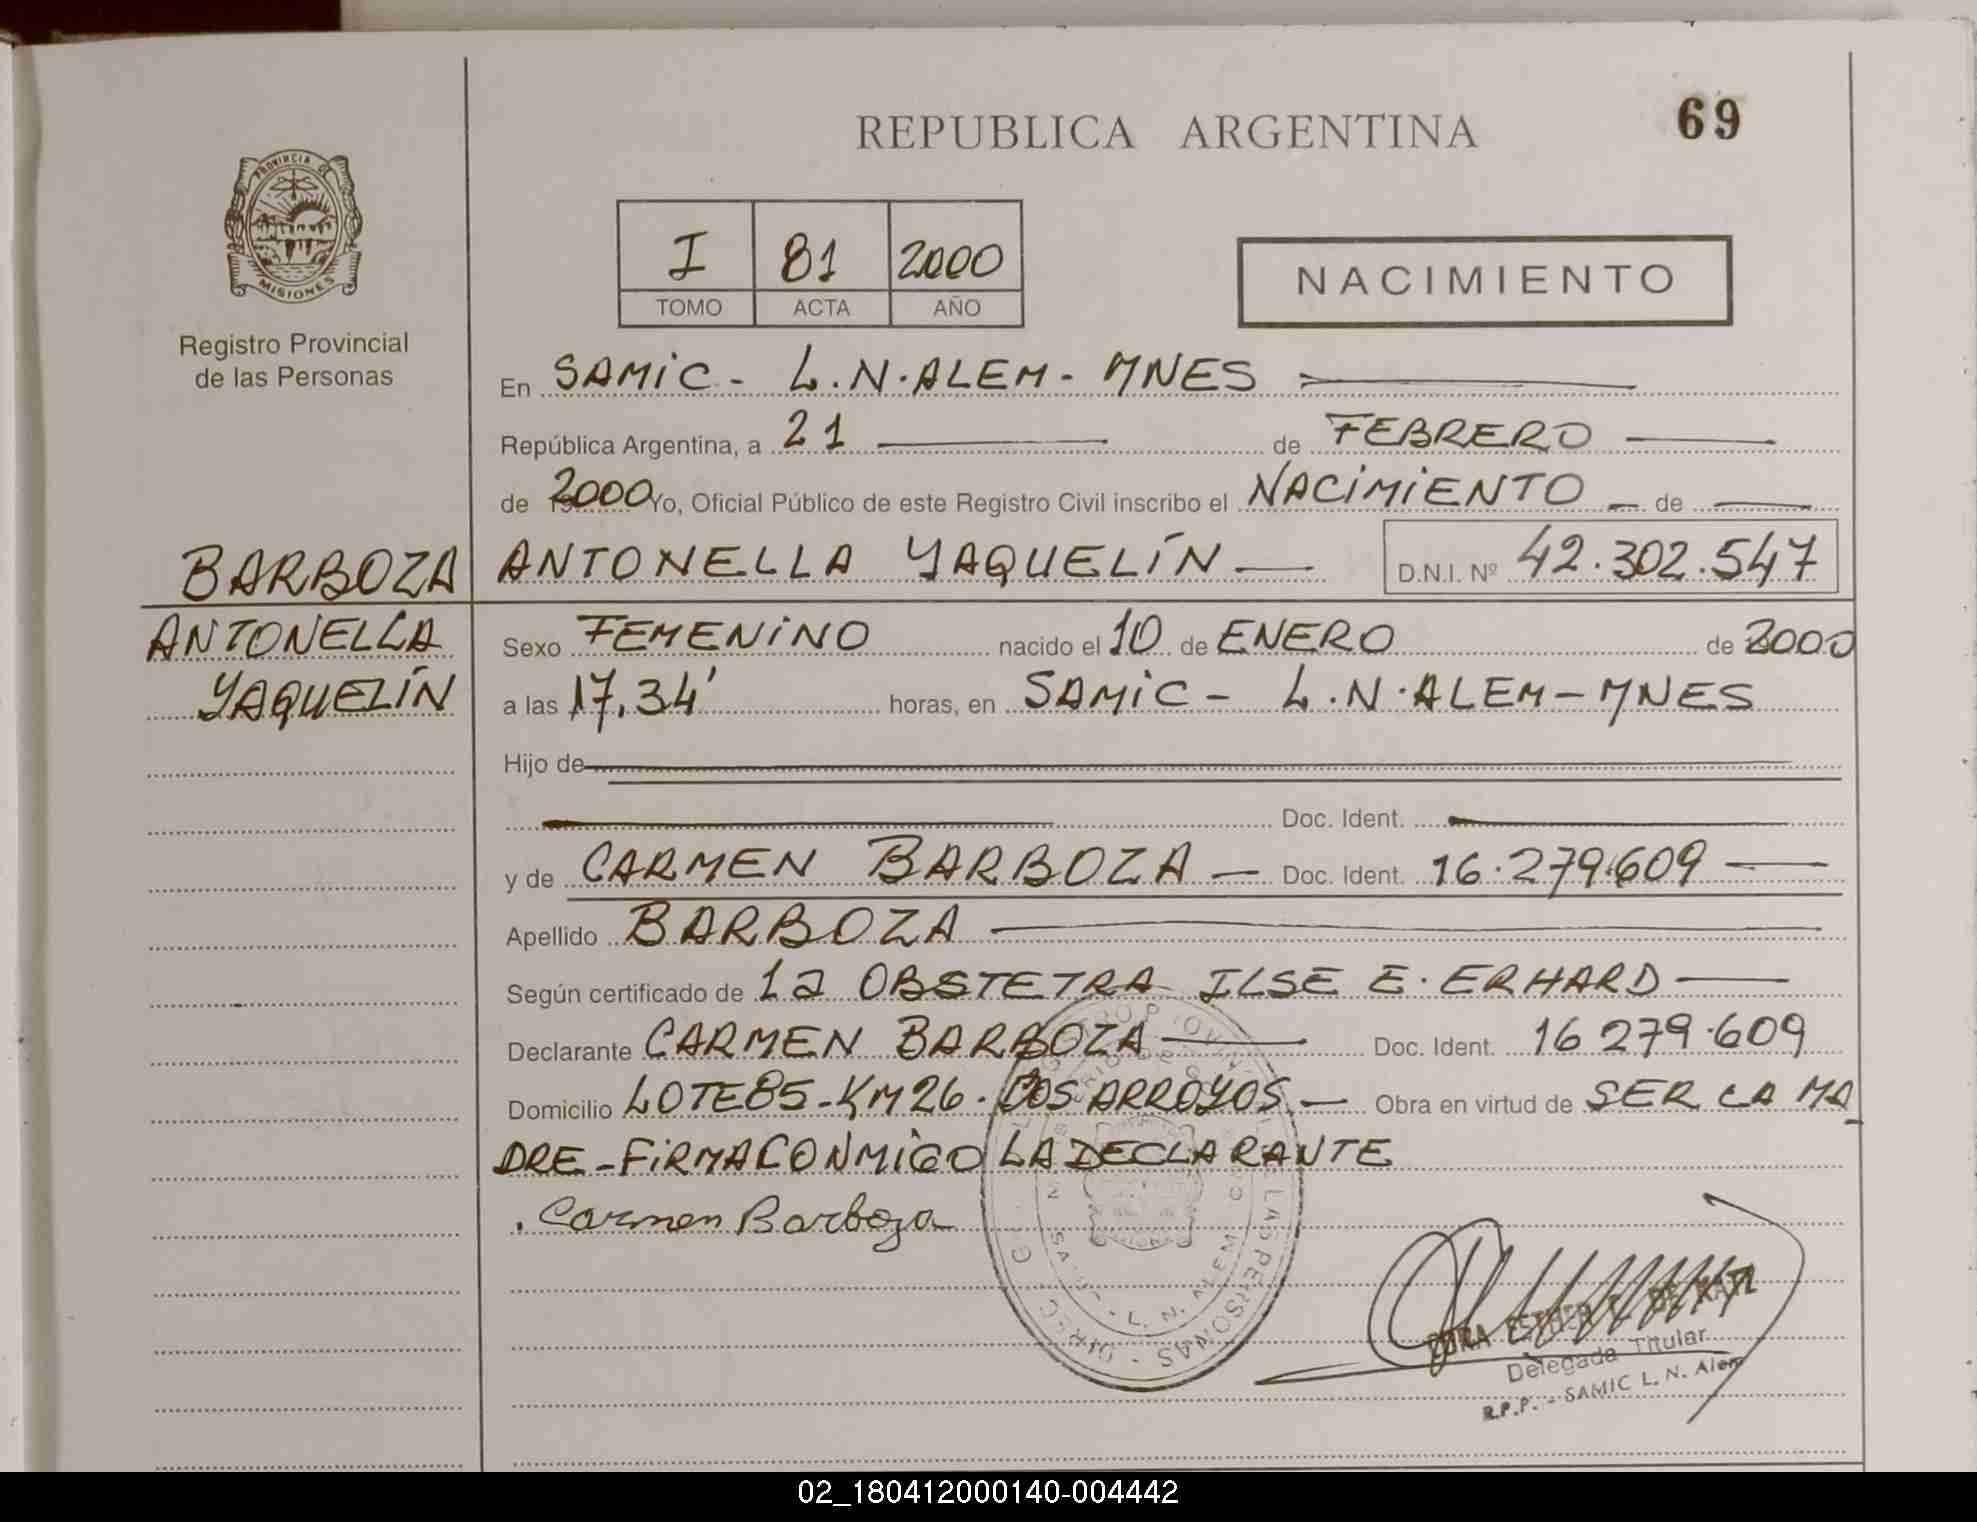 69
REPUBLICA ARGENTINA
PROVINCIA DE
MISIONES
Registro Provincial
de las Personas
I 81 2000
TOMO ACTA AÑO
NACIMIENTO
En SAMIC - L.N.ALEM - MNES
República Argentina, a 21 de FEBRERO
de 2000 Yo, Oficial Público de este Registro Civil inscribo el NACIMIENTO de
BARBOZA ANTONELLA YAQUELÍN D.N.I. Nº 42.302.547
ANTONELLA
YAQUELÍN
Sexo FEMENINO nacido el 10 de ENERO de 2000
a las 17,34' horas, en SAMIC - L.N.ALEM - MNES
Hijo de
Doc. Ident.
y de CARMEN BARBOZA Doc. Ident. 16.279.609
Apellido BARBOZA
Según certificado de la OBSTETRA ILSE E. ERHARD
Declarante CARMEN BARBOZA Doc. Ident. 16 279.609
Domicilio LOTE 85 - KM 26 - DOS ARROYOS - Obra en virtud de SER LA MA
DRE - FIRMA CONMIGO LA DECLARANTE
Carmen Barboza
ESTHER
Delegada Titular
R.P.P. - SAMIC L. N. Alem
02_180412000140-004442